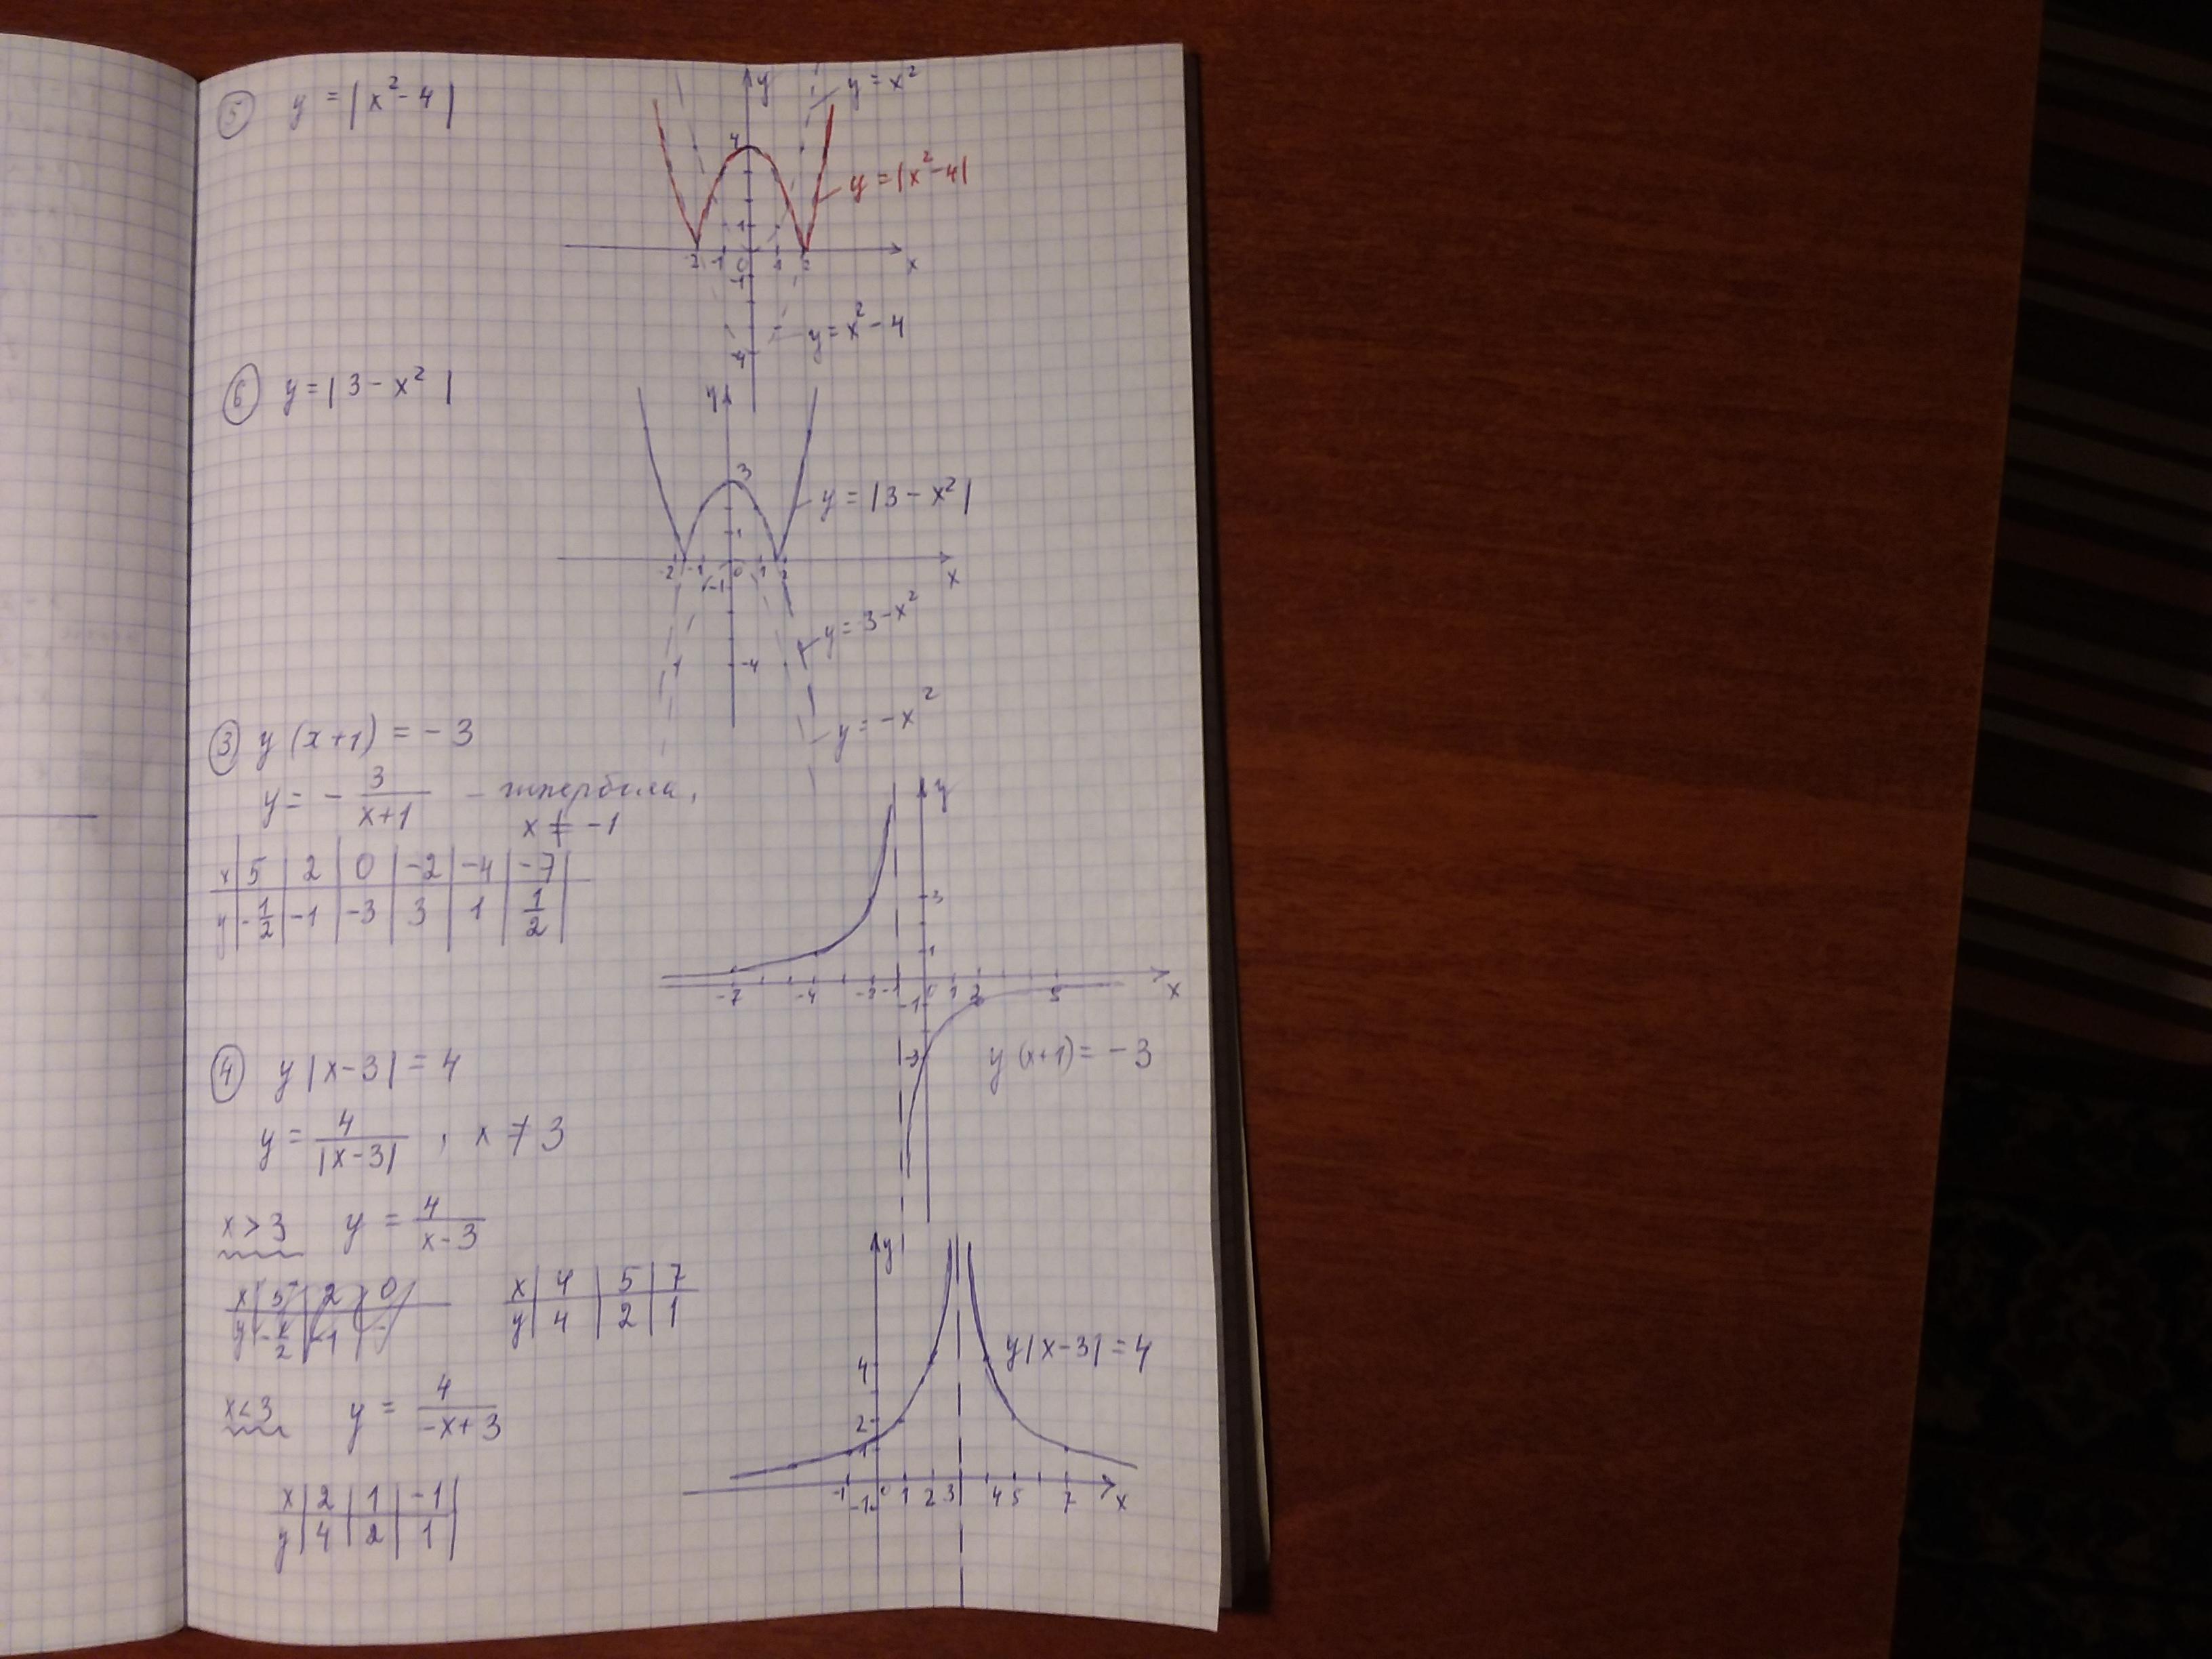 ⑤ y = |x² - 4|
y
y = x²
4
y = |x² - 4|
1
-2 -1 0 1 2 x
-1
y = x² - 4
-4
⑥ y = |3 - x²|
y
3
y = |3 - x²|
1
-2 -1 0 1 2 x
-1
y = 3 - x²
-4
y = -x²
③ y (x+1) = -3
y = - 3/(x+1) - гипербола,
x ≠ -1
x | 5 | 2 | 0 | -2 | -4 | -7 |
y | -1/2 | -1 | -3 | 3 | 1 | 1/2 |
y
3
1
-7 -4 -2 -1 0 1 2 5 x
-1
-3
y (x+1) = -3
④ y |x-3| = 4
y = 4/|x-3| , x ≠ 3
x > 3 y = 4/(x-3)
x | 5 | 2 | 0
y | -1/2 | -1 | -
x | 4 | 5 | 7
y | 4 | 2 | 1
x < 3 y = 4/(-x+3)
x | 2 | 1 | -1 |
y | 4 | 2 | 1 |
y
y |x-3| = 4
4
2
1
-1 0 1 2 3 4 5 7 x
-1